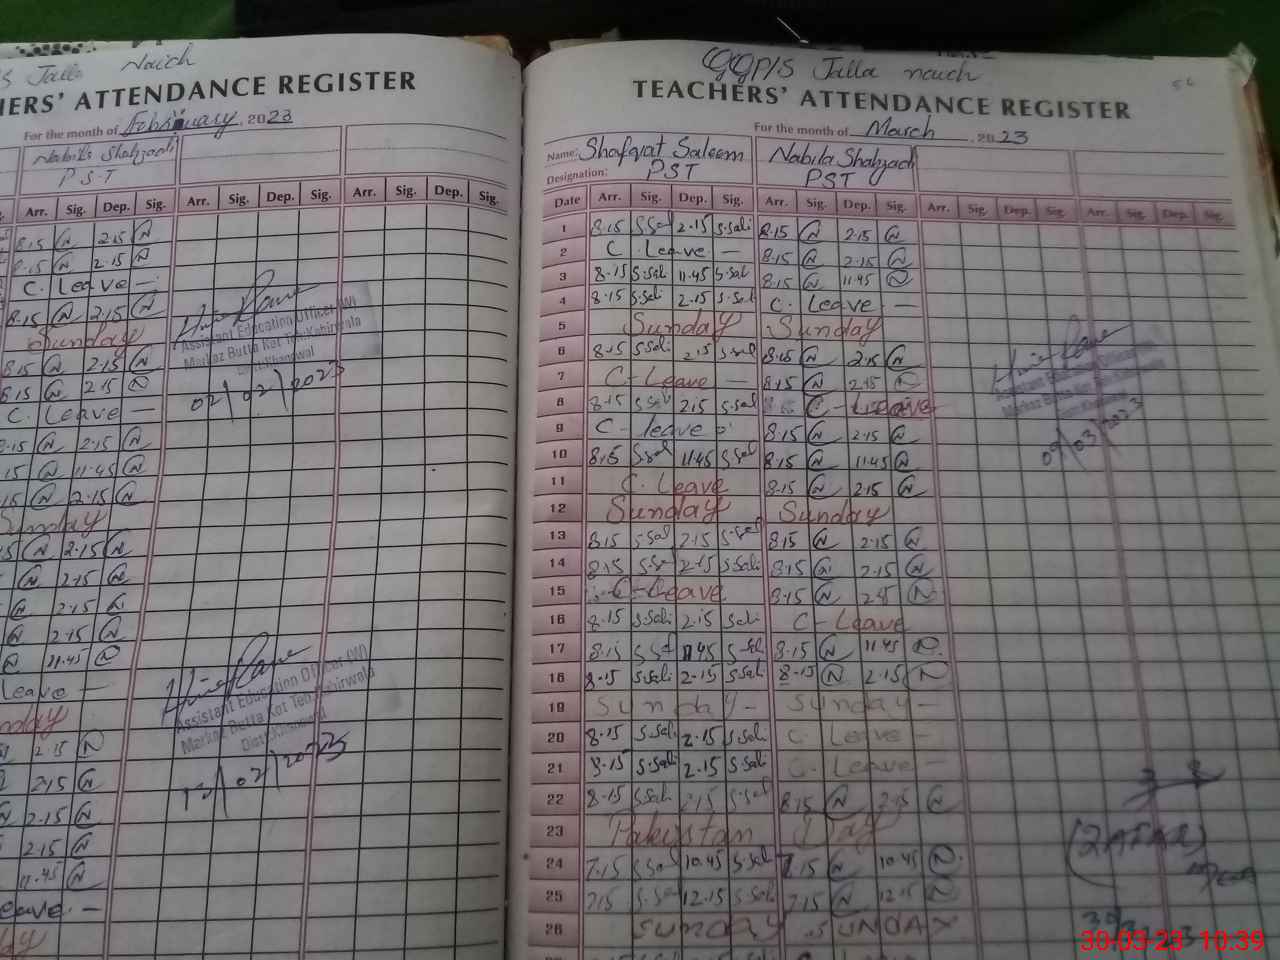 S Jalla Naich
HERS' ATTENDANCE REGISTER
For the month of February, 2023
Nabila Shahzadi
P.S.T
Arr. Sig. Dep. Sig. Arr. Sig. Dep. Sig. Arr. Sig. Dep. Sig.
8.15 N 2.15 N
8.15 N 2.15 N
C. Leave —
8.15 N 2.15 N
Sunday
8.15 N 2.15 N
8.15 N 2.15 N
C. Leave —
8.15 N 2.15 N
15 N 11.45 N
15 N 2.15 N
Sunday
15 N 2.15 N
N 2.15 N
N 2.15 N
N 2.15 N
N 11.45 N
Leave —
nday
2.15 N
2.15 N
N 2.15 N
2.15 N
11.45 N
eave —
ay
Assistant Education Officer (W)
Markaz Butta Kot Teh:Kabirwala
Distt:Khanewal
02/02/2023
Assistant Education Officer (W)
Markaz Butta Kot Teh:Kabirwala
Distt:Khanewal
02/2023
GGP/S Jalla naich
TEACHERS' ATTENDANCE REGISTER
For the month of March, 2023
Name: Shafqat Saleem Nabila Shahzadi
Designation: PST PST
Date Arr. Sig. Dep. Sig. Arr. Sig. Dep. Sig. Arr. Sig. Dep. Sig. Arr. Sig. Dep. Sig.
1 8.15 S.Sal 2.15 S.Sali 8.15 N 2.15 N
2 C. Leave — 8.15 N 2.15 N
3 8.15 S.Sal 11.45 S.Sali 8.15 N 11.45 N
4 8.15 S.Sali 2.15 S.Sal C. Leave —
5 Sunday Sunday
6 8.15 S.Sali 2.15 S.Sal 8.15 N 2.15 N
7 C-Leave — 8.15 N 2.15 N
8 8.15 S.Sal 2.15 S.Sal C-Leave
9 C-leave 8.15 N 2.15 N
10 8.15 S.Sal 11.45 S.Sal 8.15 N 11.45 N
11 C. Leave 8.15 N 2.15 N
12 Sunday Sunday
13 8.15 S.Sal 2.15 S.Sal 8.15 N 2.15 N
14 8.15 S.Sal 2.15 S.Sali 8.15 N 2.15 N
15 C-Leave 8.15 N N
16 8.15 S.Sali 2.15 Sali C-Leave
17 8.15 S.Sal 11.45 S.Sal 8.15 N 11.45 N
18 8.15 S.Sali 2.15 S.Sali 8.15 N 2.15 N
19 Sunday— Sunday—
20 8.15 S.Sali 2.15 S.Sali C. Leave —
21 8.15 S.Sali 2.15 S.Sali C. Leave —
22 8.15 S.Sali 2.15 S.Sal 8.15 N 2.15 N
23 Pakistan Day
24 7.15 S.Sal 10.45 S.Sal 7.15 N 10.45 N
25 7.15 S.Sal 12.15 S.Sali 7.15 N 12.15 N
26 SUNDAY SUNDAY
Assistant Education Officer
Markaz Butta Kot Teh:Kabirwala
09/03/2023
(ZAFAR)
30-03-23 10:39